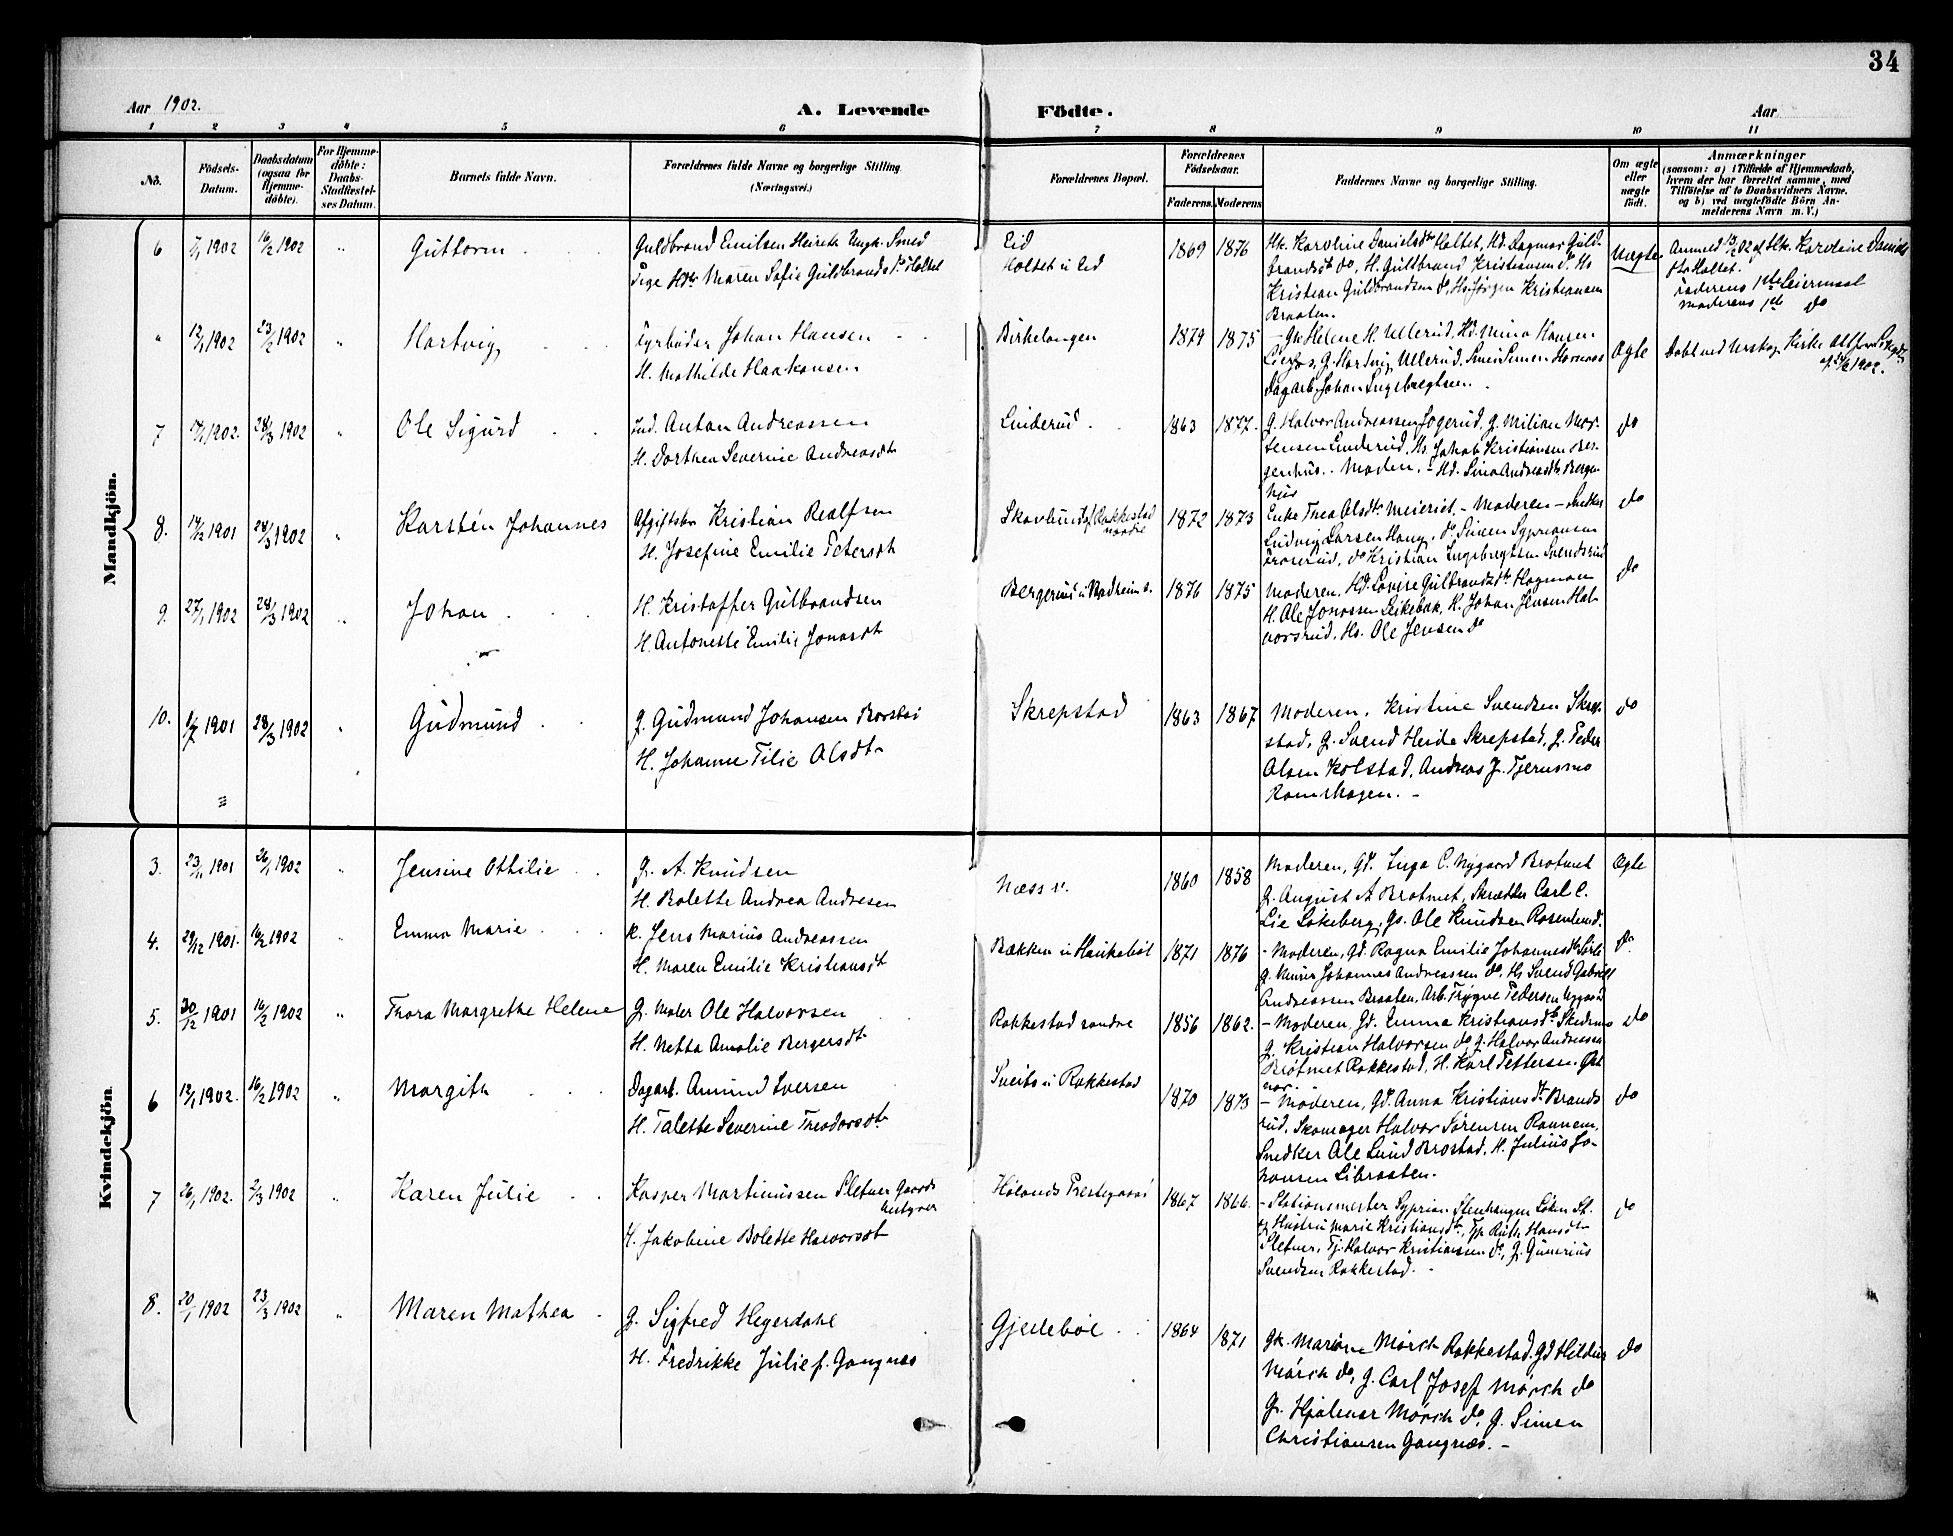 34
Aar 1902.
A. Levende
Födte.
Aar
1 2 3 4 5 6 7 8 9 10 11
No.
Födsels-
Datum.
Daabsdatum
(ogsaa for
Hjemme-
döbte).
For Hjemme-
döbte:
Daabs-
Stadfæstel-
ses Datum.
Barnets fulde Navn.
Forældrenes fulde Navne og borgerlige Stilling.
(Næringsvei.)
Forældrenes Bopæl.
Forældrenes
Födselsaar.
Faderens. Moderens
Faddernes Navne og borgerlige Stilling.
Om ægte
eller
uægte
födt.
Anmærkninger
(saasom: a) i Tilfælde af Hjemmedaab,
hvem der har forrettet samme, med
Tilföielse af to Daabsvidners Navne.
og b) ved uægtefödte Börn An-
melderens Navn m. V.)
Mandkjön.
6 7/1 1902 16/2 1902 " Guttorm
Guldbrand Emilsen Ungk. Smed
Pige Maren Sofie Guldbrandsdtr Holtet
Eid
Holtet u Eid
1869 1876
Hk. Karoline Danielsdtr Holtet, Hd. Dagmar Guld-
brandsdtr do, H. Guldbrand Kristiansen do Hs
Kristian Guldbrandsen do, Hs. Jörgen Kristiansen
Braaten.
Uægte
Anmed 13/2 02 af Hk. Karoline Daniels
dtr Holtet.
Faderens 1ste Leiermaal
Moderens 1ste do
" 12/1 1902 23/2 1902 " Hartvig
Fyrböder Johan Hansen
H. Mathilde Haakonsen
Birkelangen
1879 1875
Gk Helene H. Ullerud, Hd. Mina Hansen
G. Hartvig Ullerud, Simen Hornæs
Dagarb. Johan Ingebregtsen.
Ægte
Döbt ved Urskog Kirke
7 17/1 1902. 28/3 1902 " Ole Sigurd
Ind. Anton Andreassen
H. Dorthea Severine Andreasdtr
Linderud
1863 1877.
G. Halvor Andreassen Fogerud, G. Milian Mor-
tensen Linderud, Hs. Jakob Kristiansen Ber-
genhus. Moderen. - Hd. Lina Andreasdtr Bergen
hus
do
8. 17/12 1901 28/3 1902 " Karsten Johannes
Afgiftsbr Kristian Realfsen
H. Josefine Emilie Petersdtr
Skovlund af Rakkestad
nordre
1872 1873
Enke Thea Olsdtr Meieriet. - Moderen - Snedker
Ludvig Larsen Haug, do Simen Sypriansen
do Kristian Ingebregtsen Svendsrud
do
9. 27/1 1902 28/3 1902 " Johan
H. Kristoffer Gulbrandsen
H. Antonette Emilie Jonasdtr
Bergerud u Nadheim s.
1876 1875
Moderen. Hd. Lovise Gulbrandsdtr Hagman
H. Ole Jonassen Eikebak, H. Johan Jensen Hal-
vorsrud, Hs. Ole Jensen do
do
10. 1901 28/3 1902 " Gudmund
G. Gudmund Johansen
H. Johanne Tilie Olsdtr
Skrepstad
1863 1867
Moderen, Kristine Svendsen Skrep-
stad, G. Svend Heide Skrepstad, G. Peder
Olsen Kolstad, Andreas J. Tjernsmo
do
Kvindekjön
3. 23/11 1901 26/1 1902 " Jensine Othilie
G. A. Knudsen
H. Bolette Andrea Andresen
Næss v.
1860 1858
Moderen, Gd. Inga C. Nygaard Bråtnet
G. August A Bråtnet, Skrædder Carl C.
Lie Lökeberg, Gs. Ole Knudsen Rosenlund.
Ægte
4. 29/12 1901. 16/2 1902 " Emma Marie
H. Jens Marius Andreassen
H. Maren Emilie Kristiansdt
Bækken u Haukeböl
1871 1876
- Moderen, Gd. Ragna Emilie Johannesdtr
G. Johannes Andreassen do, Hs Svend Gabriel
Andreassen Braaten, Arb. Trygve Pedersen Nygaard
do.
5. 30/12 1901 16/2 1902 " Thora Margrethe Helene
G. Maler Ole Halvorsen
H. Netta Amalie Bergersdtr
Rakkestad söndre
1856 1862.
- Moderen, Gd. Emma Kristiansdtr
G. Kristian Halvorsen do G. Halvor Andreassen
Bråtnet Rakkestad, H. Karl Pettersen.
do
6 12/1 1902. 16/2 1902 " Margith
Dagarb. Amund Iversen
H. Talette Severine Theodorsdtr
Sveits u Rakkestad
1870 1873
- Moderen, Gd. Anna Kristiansdtr Brands
rud. Skomager Halvor Sörensen Ronnem,
Snedker Ole Lund Brostad. H. Julius Jo-
hansen Libraaten.
do
7 26/1 1902. 2/3 1902 " Karen Julie
Kasper Martinussen Sletner Gaards
bestyrer
H. Jakobine Bolette Halvorsdt
Hölands Prestegaard
1867 1866.
- Stationsmester Syprian Stenhaugen Löken St.
og Hustru Marie Kristiansdtr, Tjp. Ruth Hansdtr
Sletner, Tj. Halvor Kristiansen do, G. Gunerius
Svendsen Rakkestad.
do
8. 20/1 1902 23/3 1902 " Maren Mathea
G. Sigfred Hegerdahl
H. Fredrikke Julie f. Gangnæs
Gjelleböl
1864 1871
Gk. Marione Mörch Rakkestad. Gd Hildur
Mörch do, G. Carl Josef Mörch do
G. Hjalmar Mörch do, G. Simen
Christiansen Gangnæs. -
do